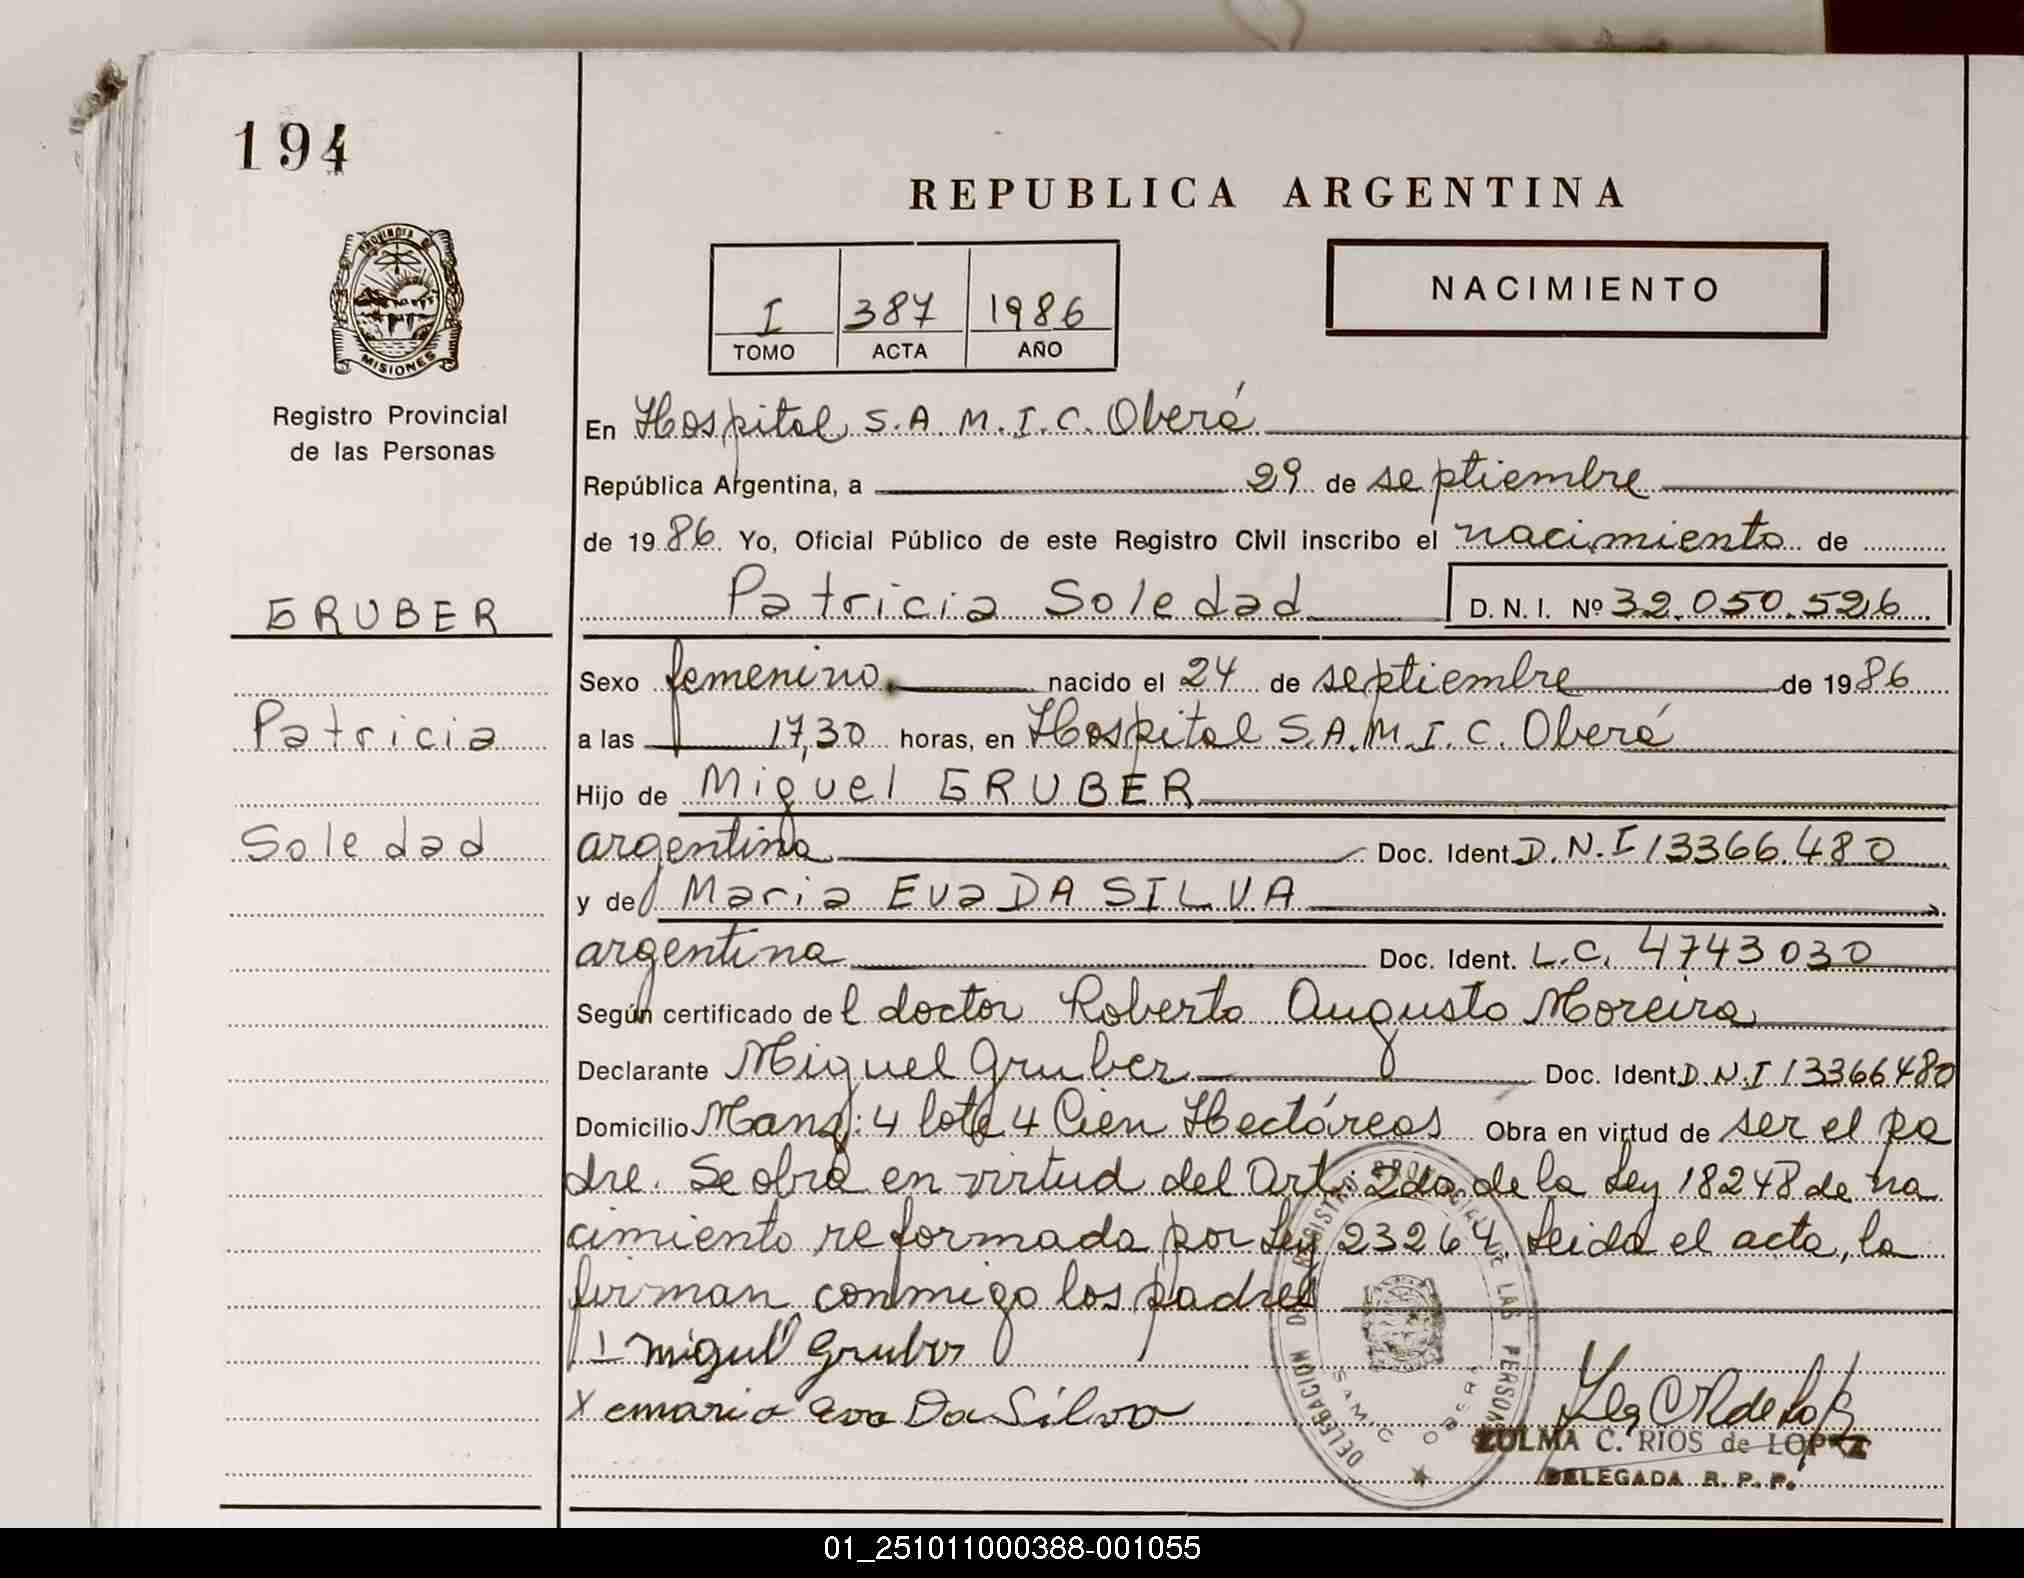 194
REPUBLICA ARGENTINA
PROVINCIA DE
MISIONES
Registro Provincial
de las Personas
I 387 1986
TOMO ACTA AÑO
NACIMIENTO
GRUBER
Patricia
Soledad
En Hospital S.A.M.I.C. Oberá
República Argentina, a 29 de septiembre
de 1986. Yo, Oficial Público de este Registro Civil inscribo el nacimiento de
Patricia Soledad D.N.I. Nº 32.050.526
Sexo femenino nacido el 24 de septiembre de 1986
a las 17,30 horas, en Hospital S.A.M.I.C. Oberá
Hijo de Miguel GRUBER
argentina Doc. Ident. D.N.I 13366.480
y de Maria Eva DA SILVA
argentina Doc. Ident. L.C. 4743030
Según certificado del doctor Roberto Augusto Moreira
Declarante Miguel Gruber Doc. Ident. D.N.I 13366480
Domicilio Manz: 4 lote 4 Cien Hectáreas Obra en virtud de ser el pa
dre. Se obra en virtud del Art. 2do. de la Ley 18248 de na
cimiento reformada por Ley 23264. Leida el acta, la
firman conmigo los padres
Miguel Gruber
X Maria Eva Da Silva
DELEGACION REGISTRO PROVINCIAL DE LAS PERSONAS
SAMIC OBERA
ZULMA C. RIOS de LOPEZ
DELEGADA R.P.P.
01_251011000388-001055